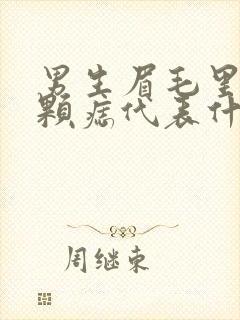 男生眉毛里
顆痣代表什
周继東